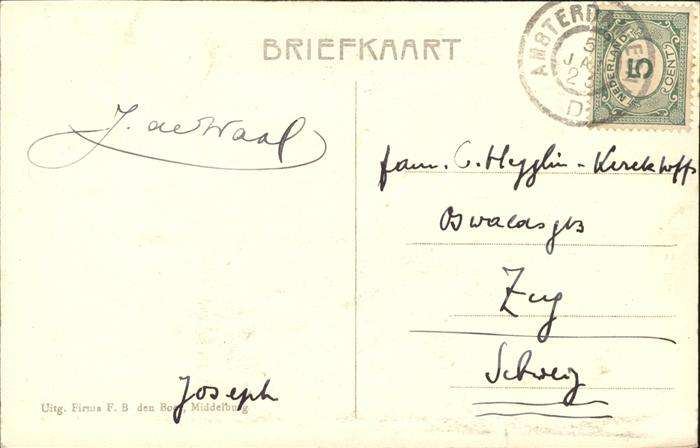 BRIEFKAART
AMSTERDAM
5
JA
2
D
NEDERLAND
5
CENT
J. de Waal
fam. C. Hegglin - Kerckhoffs
Oswaldsgs
Zug
Schweiz
Joseph
Uitg. Firma F. B. den Boer, Middelburg